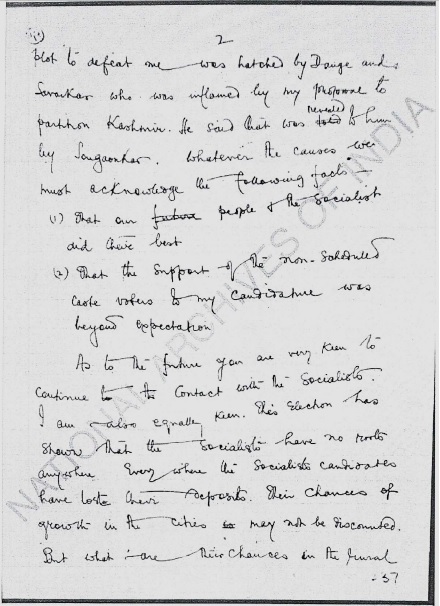 2
plot to defeat me was hatched by Dange and
Savarkar who was inflamed by my proposal to
revealed
partition Kashmir. He said that was told to him
by Songaonkar. Whatever the causes we
must acknowledge the following facts
(1) That our future people & the Socialist
did their best
(2) That the support of the non-scheduled
caste voters to my candidature was
beyond expectation
As to the future you are very keen to
continue to the contact with the Socialists.
I am also equally keen. This Election has
shown that the socialists have no roots
anywhere Every where the Socialists candidates
have lost their deposits. Their chances of
growth in the cities may not be discounted.
But what are their chances in the rural
- 37
NATIONAL ARCHIVES OF INDIA